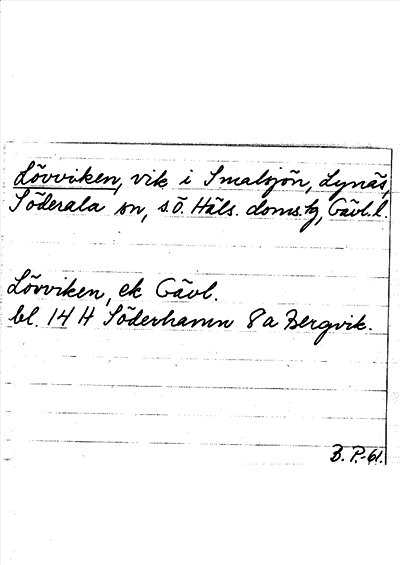 Lövviken, vik i Smalsjön, Lynäs,
Söderala sn, s.ö. Häls. doms.tg, Gävl. l.
Lövviken, ek Gävl.
bl. 14 H Söderhamn 8 a Bergvik.
B. P.-61.